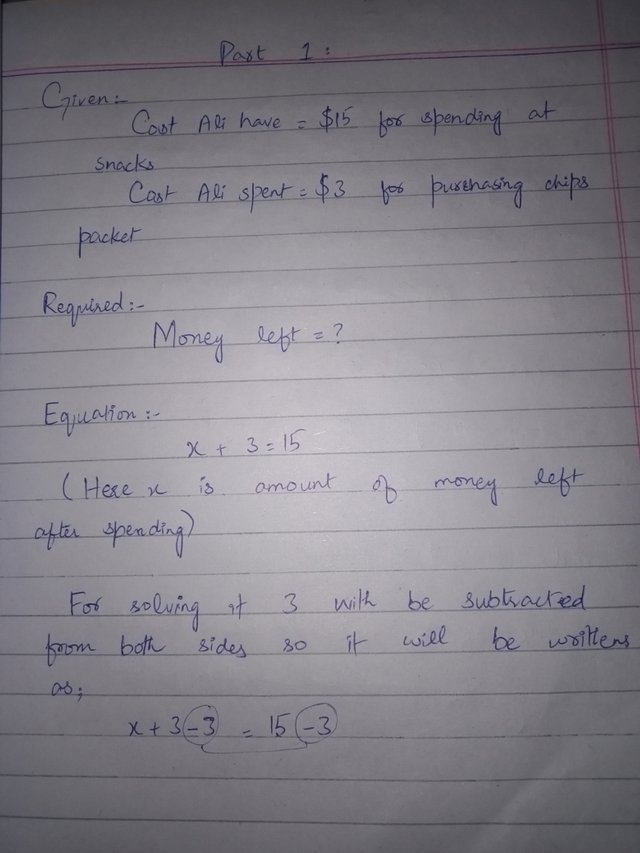 Part 1:
Given:-
Cost Ali have = $15 for spending at
snacks
Cost Ali spent = $3 for purchasing chips
packet
Required:-
Money left = ?
Equation:-
x + 3 = 15
(Here x is amount of money left
after spending)
For solving it 3 with be subtracted
from both sides so it will be writtens
as;
x + 3 - 3 = 15 - 3